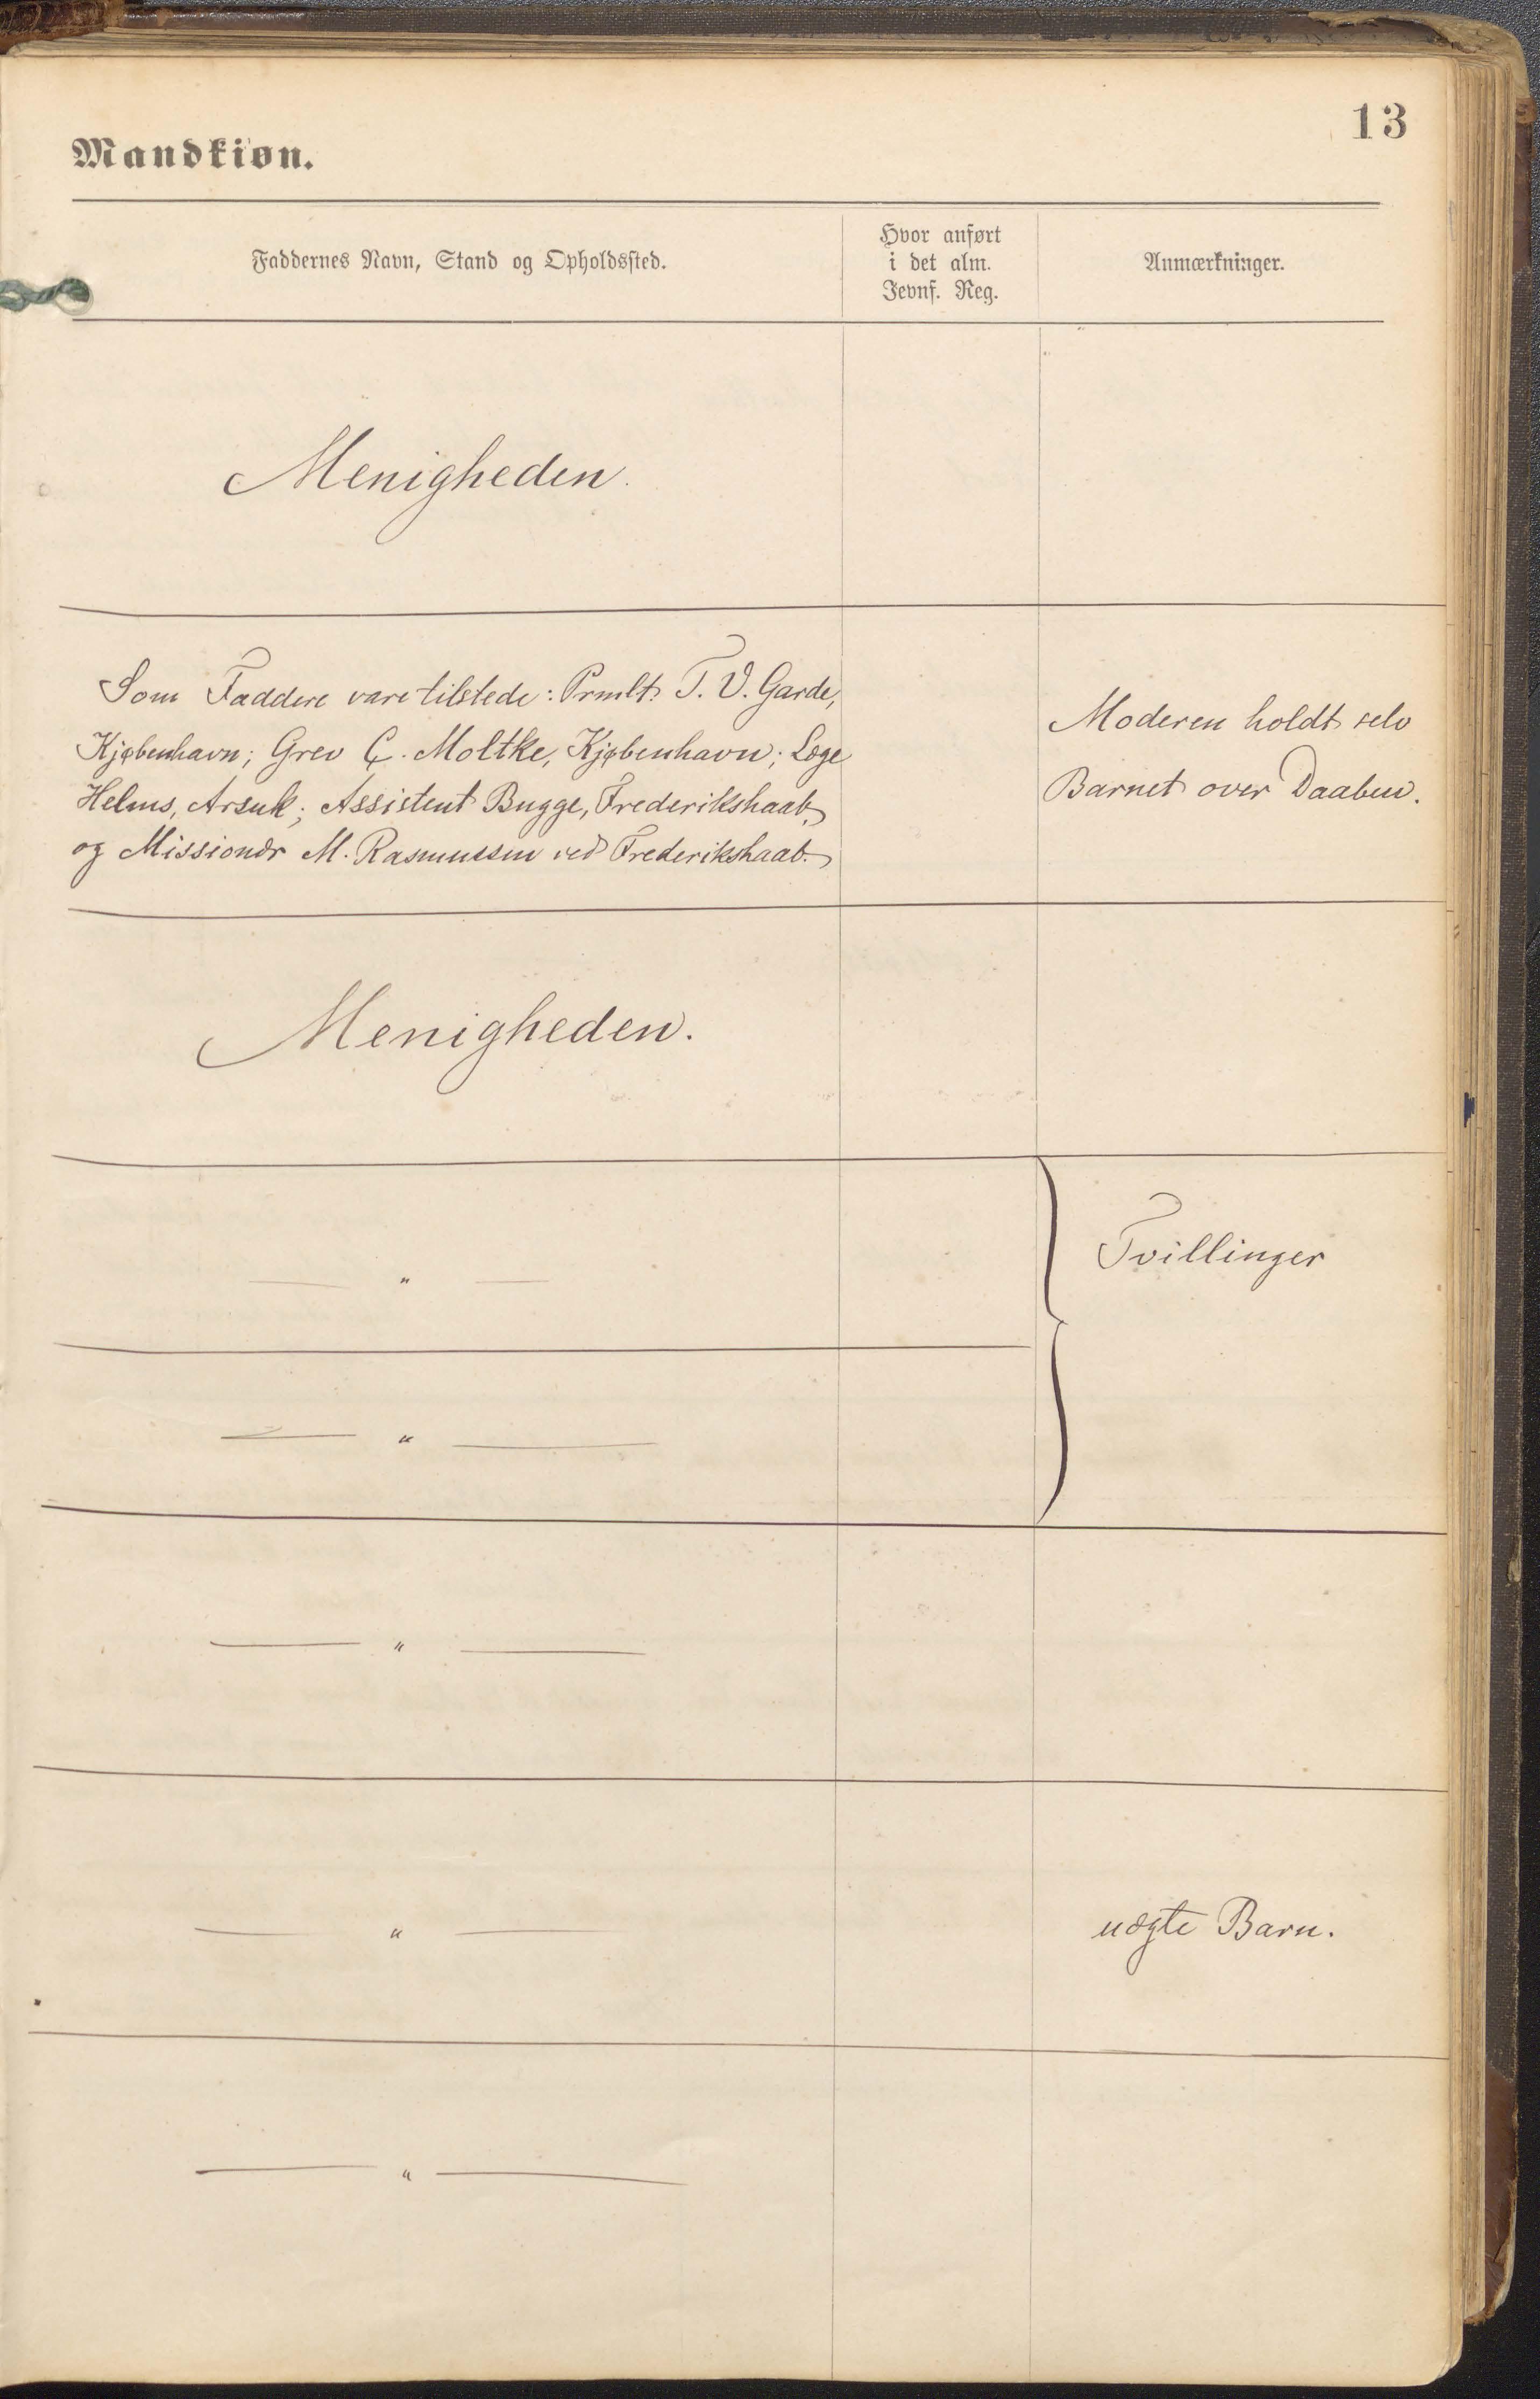 13
Mandkiøn.
Faddernes Navn, Stand og Opholdssted.
Hvor anført
i det alm.
Jevnf. Reg.
Anmærkninger.
Menigheden.
Som Faddere vare tilstede: Prmlt. T. V. Garde,
Kjøbenhavn; Grev C. Moltke, Kjøbenhavn; Læge
Helms, Arsuk; Assistent Bugge, Frederikshaab,
og Missionær M. Rasmussen ved Frederikshaab.
Moderen holdt selv
Barnet over Daaben.
Menigheden.
— " —
Tvillinger
— " —
— " —
— " —
uægte Barn.
— " —